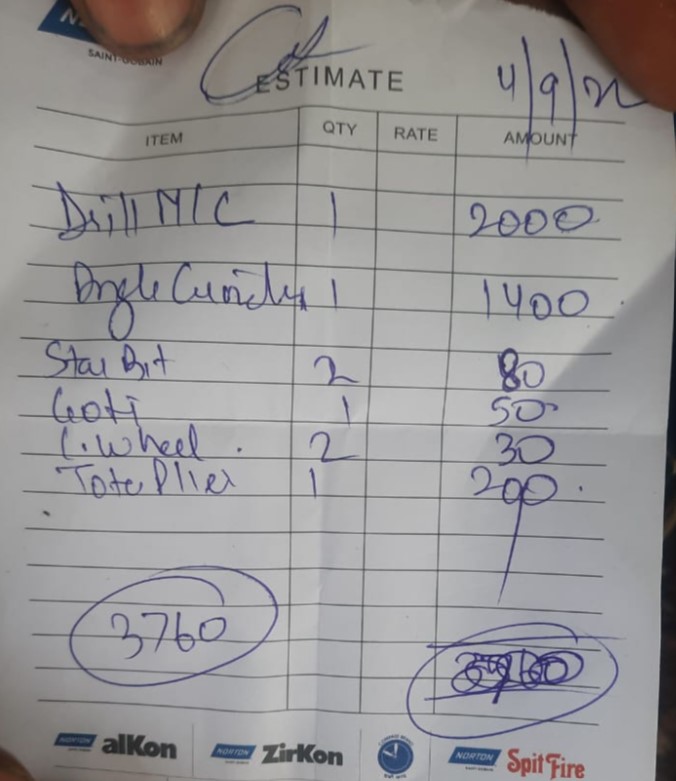 SAINT-GOBAIN
ESTIMATE 4/9/22
ITEM QTY RATE AMOUNT
Drill M/C 1 2000
Angle 1 1400
Star Bit 2 80
Goti 1 50
C. Wheel 2 30
Tota Plier 1 200
3760
NORTON alKon NORTON ZirKon NORTON SpitFire